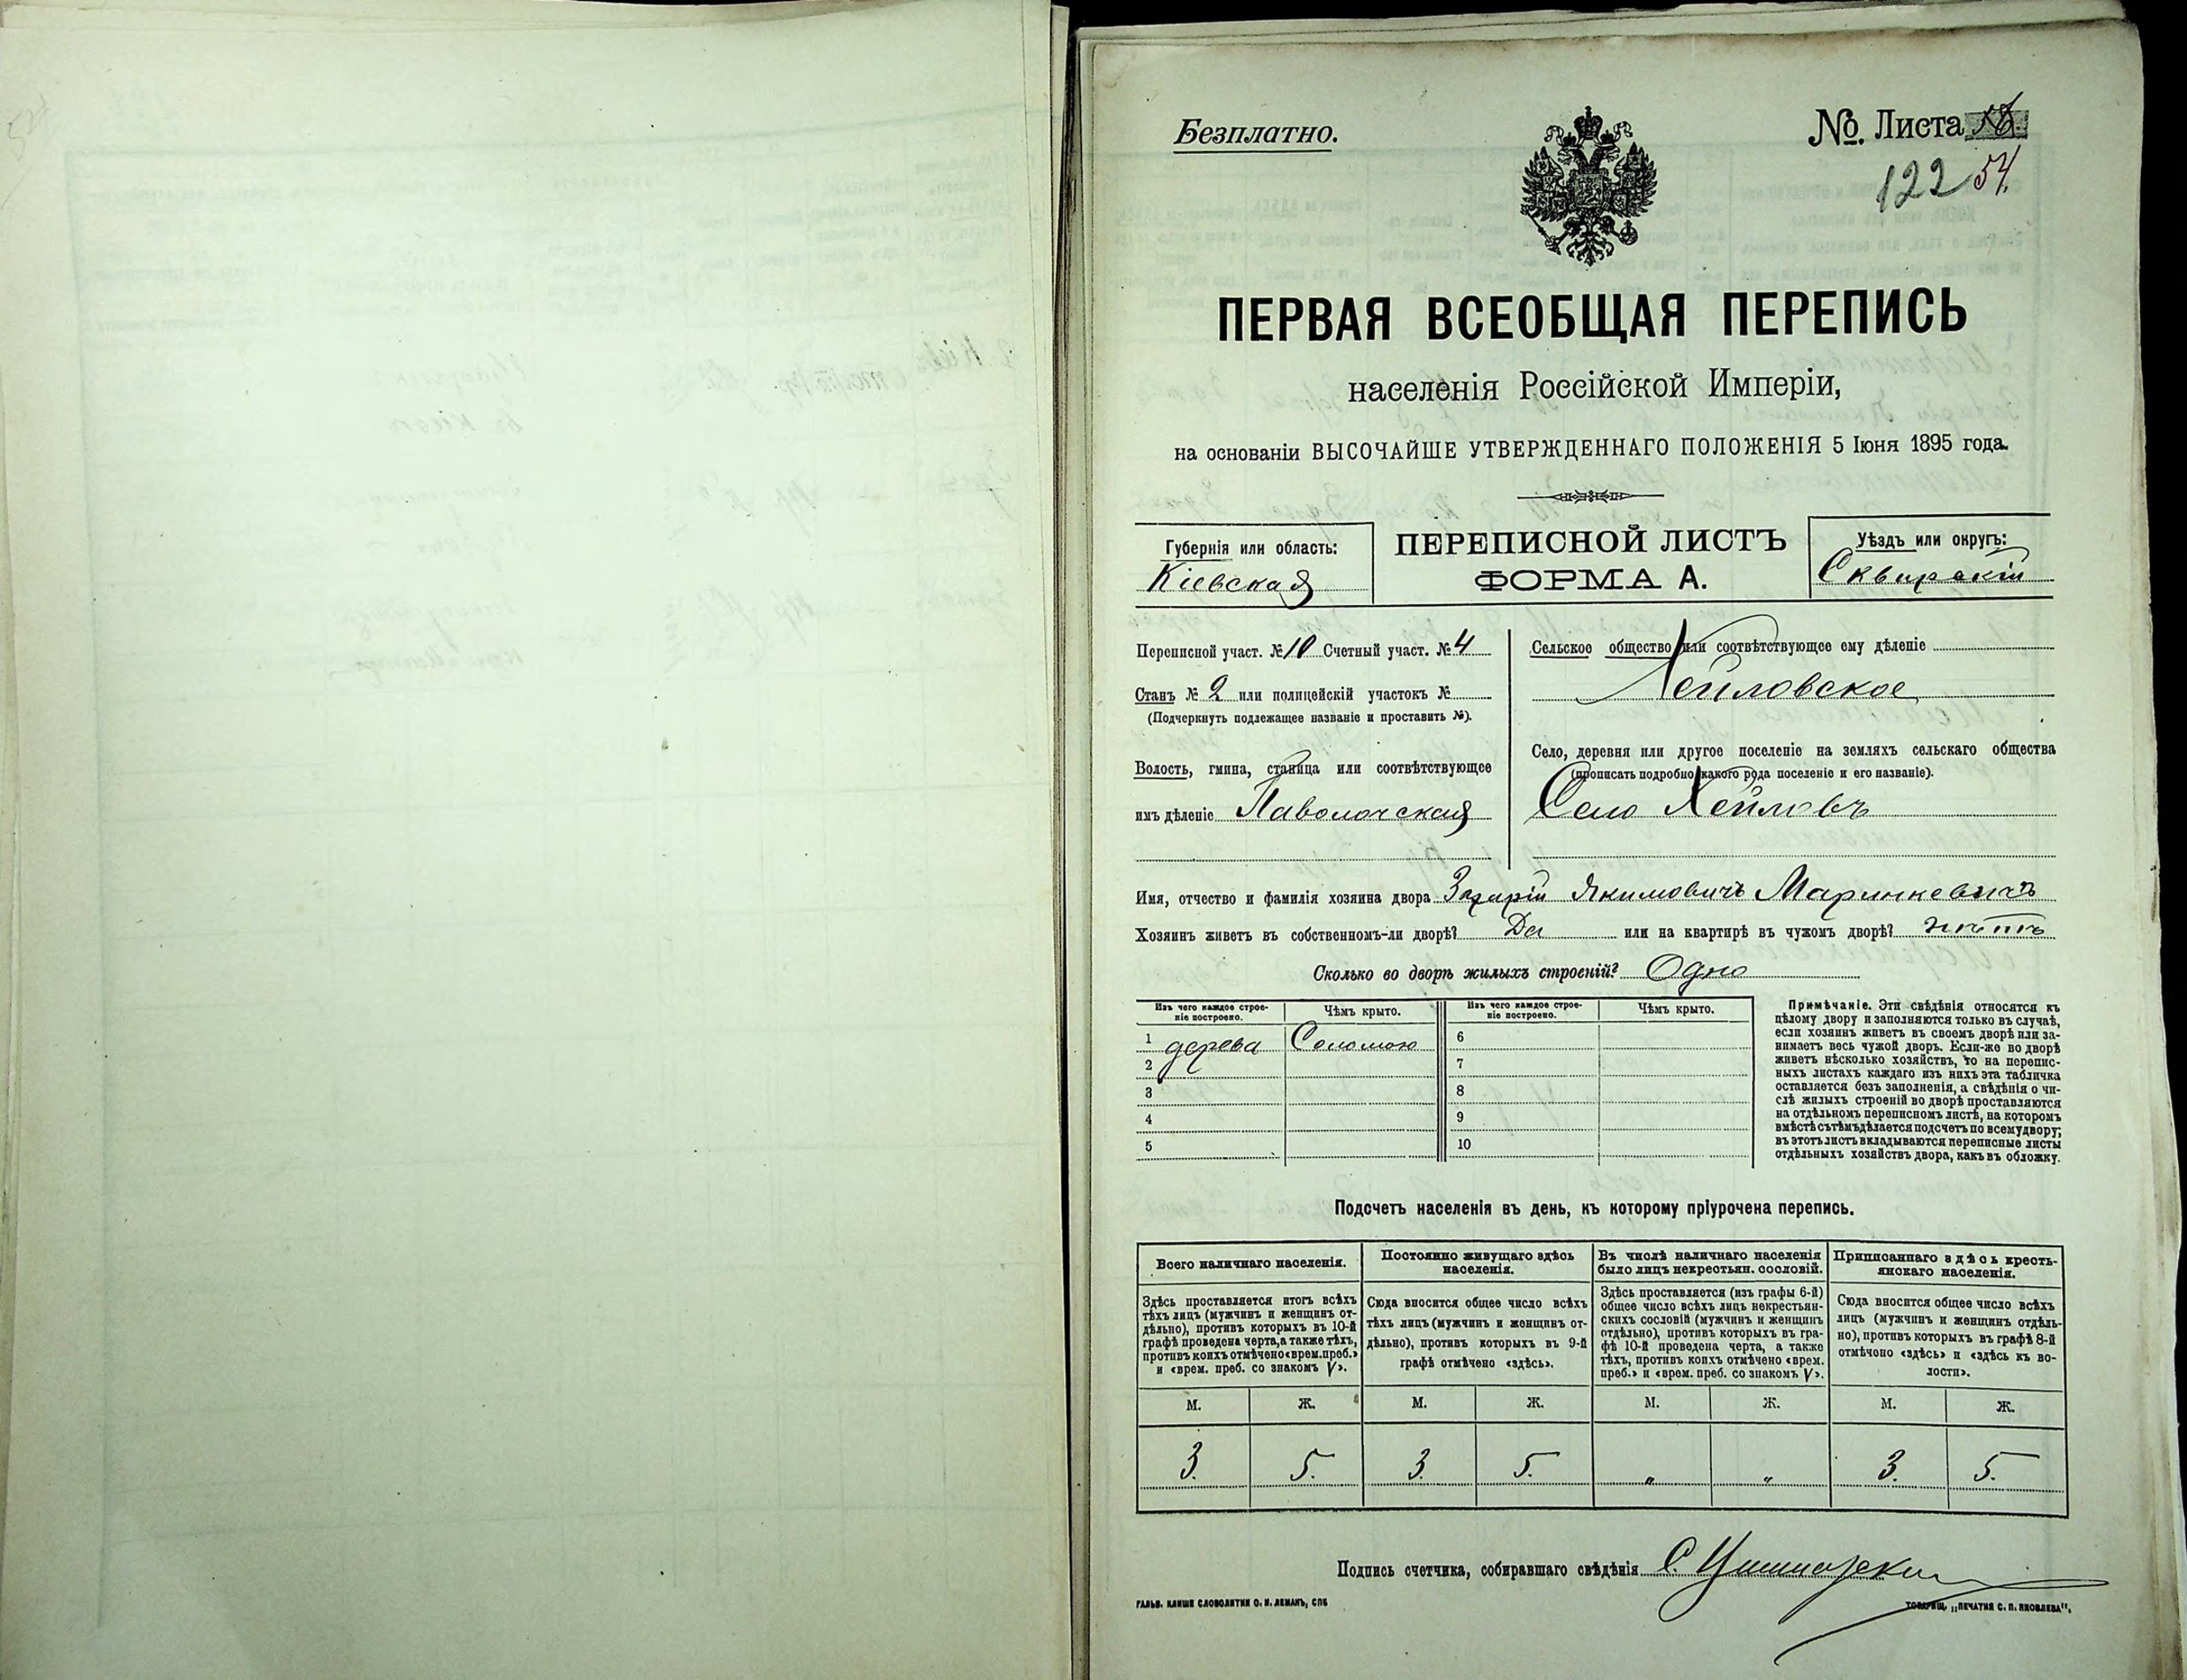 Безплатно.
№ Листа
122 54.
ПЕРВАЯ ВСЕОБЩАЯ ПЕРЕПИСЬ
населенія Россійской Имперіи,
на основаніи ВЫСОЧАЙШЕ УТВЕРЖДЕННАГО ПОЛОЖЕНІЯ 5 Іюня 1895 года.
Губернія или область:
Кіевская
ПЕРЕПИСНОЙ ЛИСТЪ
ФОРМА А.
Уѣздъ или округъ:
Сквирскій
Переписной участ. № 10 Счетный участ. № 4
Станъ № 2 или полицейскій участокъ №
(Подчеркнуть подлежащее названіе и проставить №).
Волость, гмина, станица или соотвѣтствующее
имъ дѣленіе Паволочская
Сельское общество или соотвѣтствующее ему дѣленіе
Хейловское
Село, деревня или другое поселеніе на земляхъ сельскаго общества
(прописать подробно какого рода поселеніе и его названіе).
Село Хейловъ
Имя, отчество и фамилія хозяина двора Захарій Якимовичъ Маринкевичъ
Хозяинъ живетъ въ собственномъ-ли дворѣ? Да или на квартирѣ въ чужомъ дворѣ? нѣтъ
Сколько во дворѣ жилыхъ строеній? Одно
Изъ чего каждое строе-
ніе построено.
Чѣмъ крыто.
Изъ чего каждое строе-
ніе построено.
Чѣмъ крыто.
1 дерева Соломою 6
2 7
3 8
4 9
5 10
Примѣчаніе. Эти свѣдѣнія относятся къ
цѣлому двору и заполняются только въ случаѣ,
если хозяинъ живетъ въ своемъ дворѣ или за-
нимаетъ весь чужой дворъ. Если-же во дворѣ
живетъ нѣсколько хозяйствъ, то на перепис-
ныхъ листахъ каждаго изъ нихъ эта табличка
оставляется безъ заполненія, а свѣдѣнія о чи-
слѣ жилыхъ строеній во дворѣ проставляются
на отдѣльномъ переписномъ листѣ, на которомъ
вмѣстѣ съ тѣмъ дѣлается подсчетъ по всему двору;
въ этотъ листъ вкладываются переписные листы
отдѣльныхъ хозяйствъ двора, какъ въ обложку.
Подсчетъ населенія въ день, къ которому пріурочена перепись.
Всего наличнаго населенія.
Здѣсь проставляется итогъ всѣхъ
тѣхъ лицъ (мужчинъ и женщинъ от-
дѣльно), противъ которыхъ въ 10-й
графѣ проведена черта, а также тѣхъ,
противъ коихъ отмѣчено «врем. преб.»
и «врем. преб. со знакомъ V».
Постоянно живущаго здѣсь
населенія.
Сюда вносится общее число всѣхъ
тѣхъ лицъ (мужчинъ и женщинъ от-
дѣльно), противъ которыхъ въ 9-й
графѣ отмѣчено «здѣсь».
Въ числѣ наличнаго населенія
было лицъ некрестьян. сословій.
Здѣсь проставляется (изъ графы 6-й)
общее число всѣхъ лицъ некрестьян-
скихъ сословій (мужчинъ и женщинъ
отдѣльно), противъ которыхъ въ гра-
фѣ 10-й проведена черта, а также
тѣхъ, противъ коихъ отмѣчено «врем.
преб.» и «врем. преб. со знакомъ V».
Приписаннаго здѣсь кресть-
янскаго населенія.
Сюда вносится общее число всѣхъ
лицъ (мужчинъ и женщинъ отдѣль-
но), противъ которыхъ въ графѣ 8-й
отмѣчено «здѣсь» и «здѣсь къ во-
лости».
М. Ж. М. Ж. М. Ж. М. Ж.
3. 5. 3. 5. " " 3. 5.
Подпись счетчика, собиравшаго свѣдѣнія С.
ГАЛЬВ. КЛИШЕ СЛОВОЛИТНИ О. И. ЛЕМАНЪ, СПБ
ТОВАРИЩ. „ПЕЧАТНЯ С. П. ЯКОВЛЕВА".